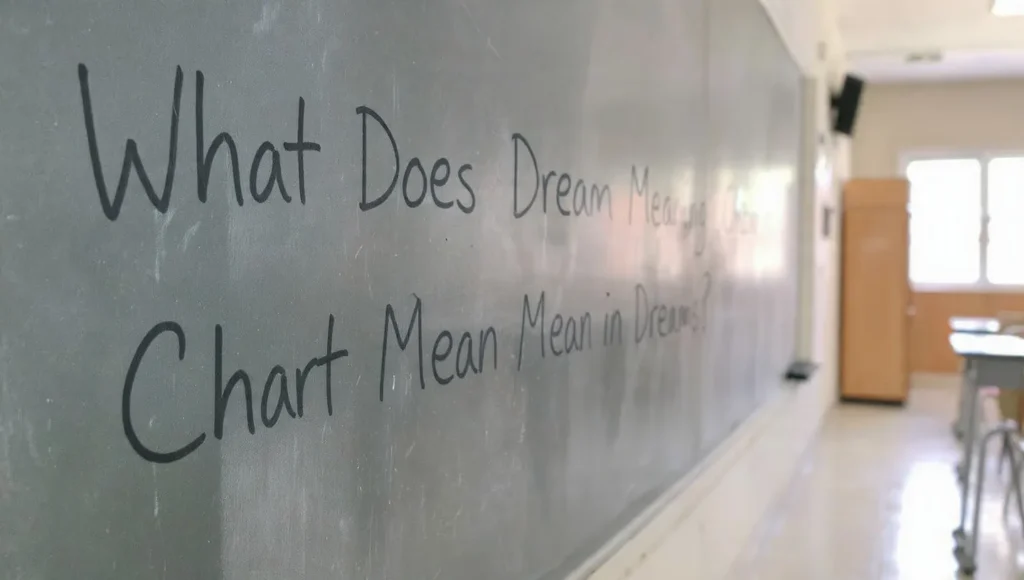 What Does Dream Meaning
Chart Mean Mean in Dreams?